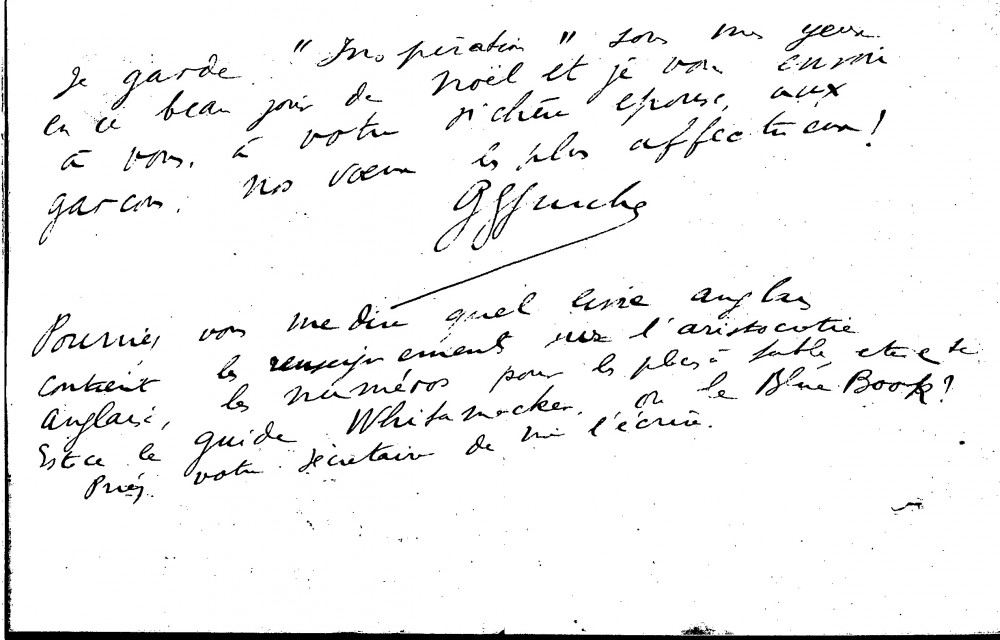 Je garde "Inspiration" sous mes yeux
en ce beau jour de Noël et je vous envoie
à vous, à votre si chère épouse, aux
garçons, nos vœux les plus affectueux!
Pourriez vous me dire quel livre anglais
contient les renseignements sur l'aristocratie
anglaise, les numéros pour les places à table, etc etc
Est ce le guide Whitamacker, ou le Blue Book?
Priez votre secrétaire de me l'écrire.